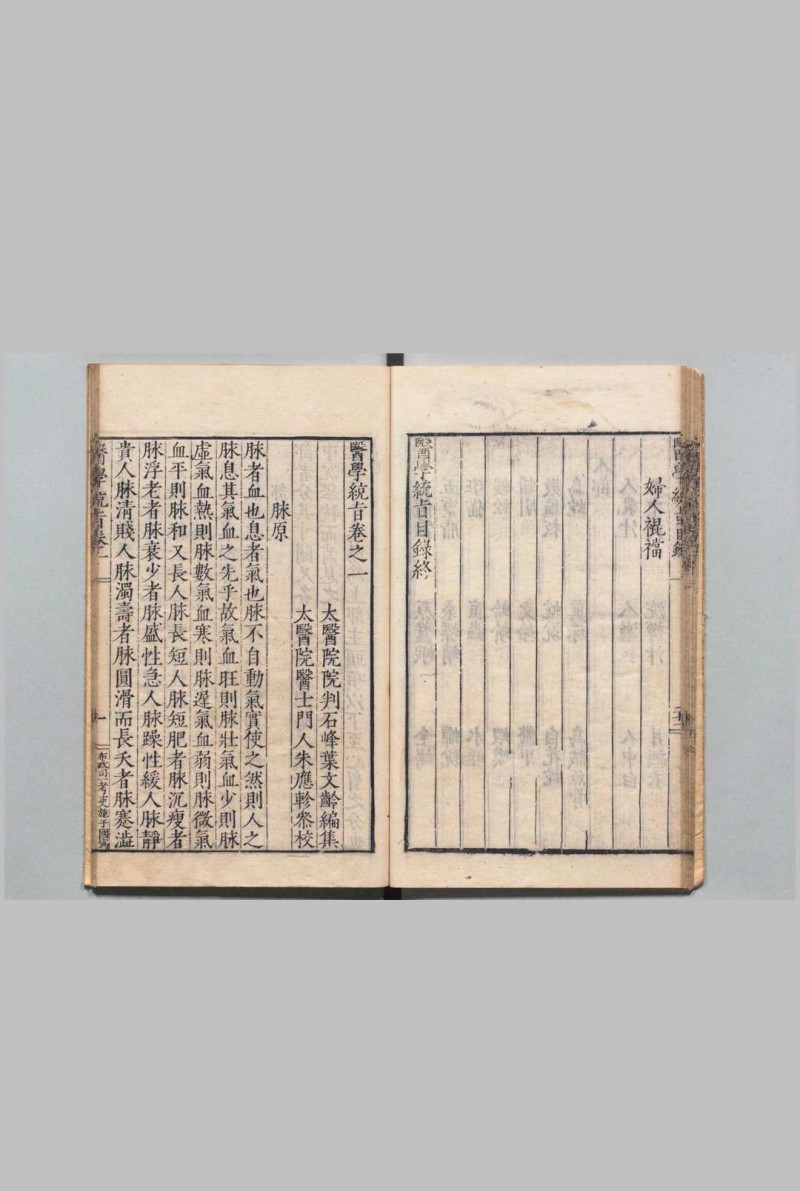 婦人裩襠
醫學統旨目錄終
醫學統旨卷之一
太醫院院判石峰葉文齡編集
太醫院醫士門人朱應軫參校
脉原
脉者血也息者氣也脉不自動氣實使之然則人之
脉息其氣血之先乎故氣血旺則脉壯氣血少則脉
虛氣血熱則脉數氣血寒則脉遲氣血弱則脉微氣
血平則脉和又長人脉長短人脉短肥者脉沉瘦者
脉浮老者脉衰少者脉盛性急人脉躁性緩人脉靜
貴人脉清賤人脉濁壽者脉圓滑而長夭者脉蹇澁
醫學統旨卷一
一